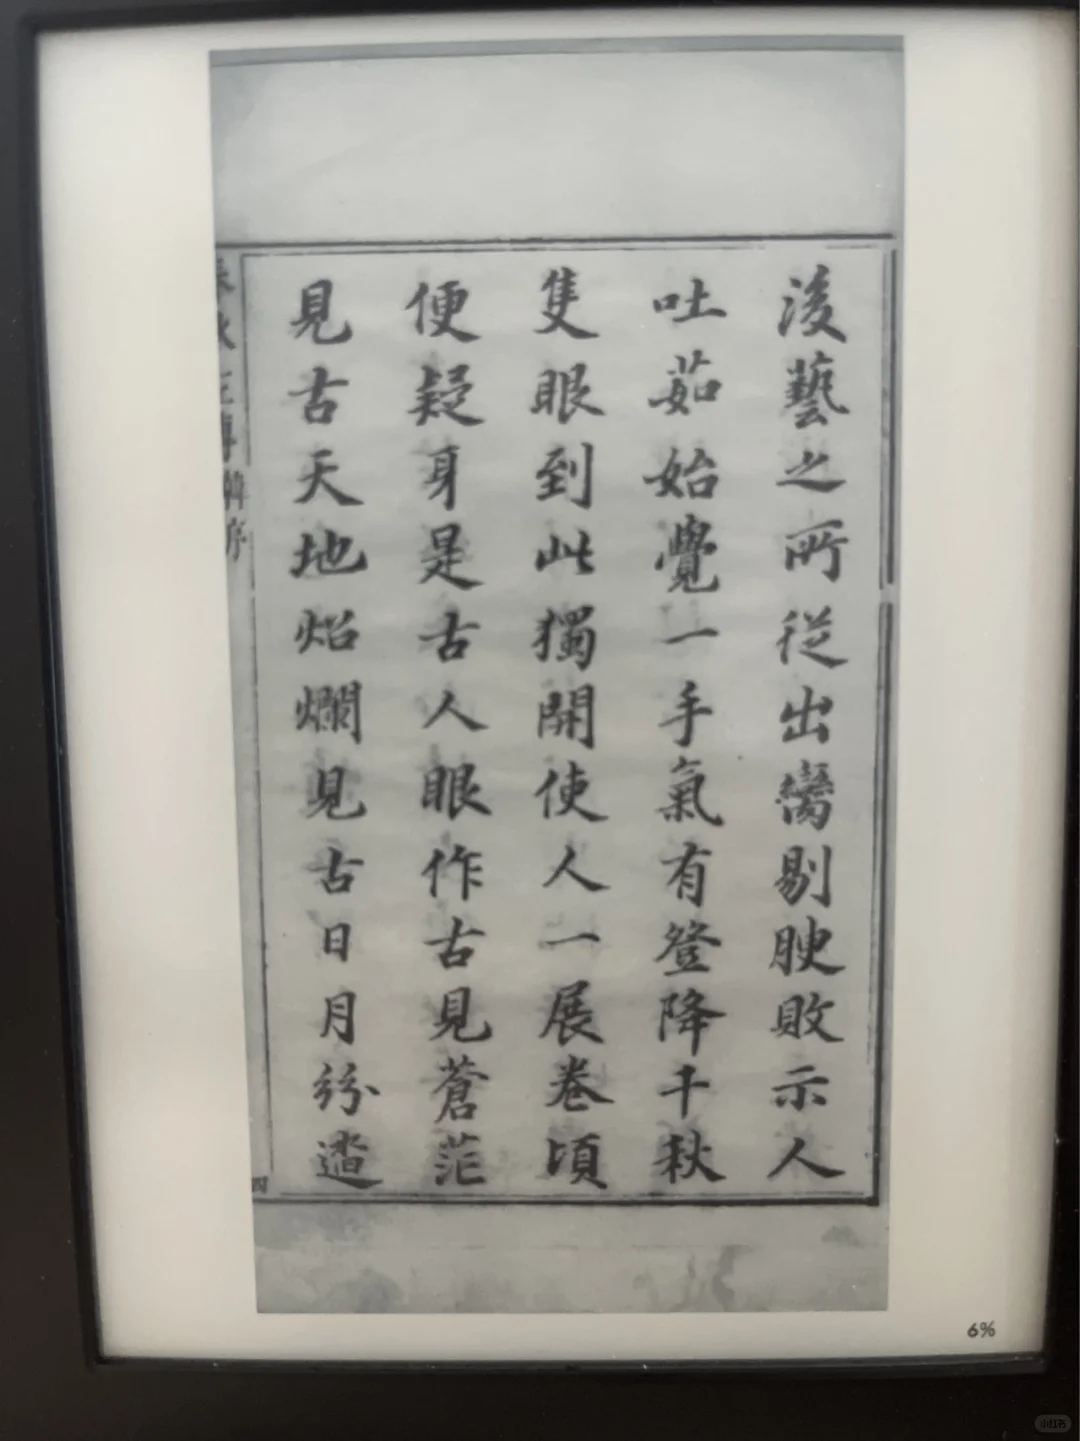 後藝之所從出臠剔腴敗示人
吐茹始覺一手氣有登降千秋
隻眼到此獨開使人一展卷頃
便疑身是古人眼作古見蒼茫
見古天地炤爛見古日月紛遝
春秋左傳 韓序
四
6%
小红书